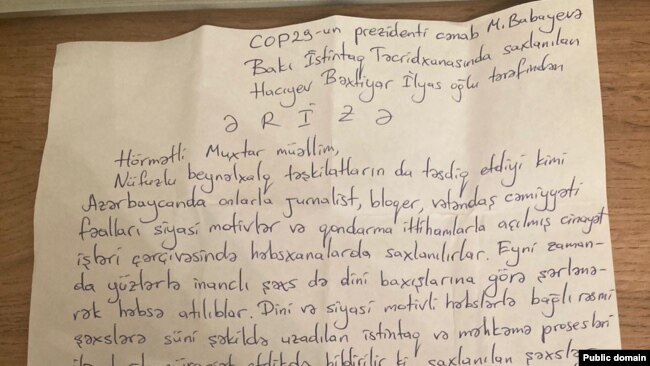 COP29-un prezidenti cənab M. Babayevə
Bakı İstintaq Təcridxanasında saxlanılan
Hacıyev Bəxtiyar İlyas oğlu tərəfindən
Ə R İ Z Ə
Hörmətli Muxtar müəllim,
Nüfuzlu beynəlxalq təşkilatların da təsdiq etdiyi kimi
Azərbaycanda onlarla jurnalist, bloqer, vətəndaş cəmiyyəti
fəalları siyasi motivlər və qondarma ittihamlarla açılmış cinayət
işləri çərçivəsində həbsxanalarda saxlanılırlar. Eyni zaman-
da yüzlərlə inanclı şəxs də dini baxışlarına görə şərlənə-
rək həbsə atılıblar. Dini və siyasi motivli həbslərlə bağlı rəsmi
şəxslərə süni şəkildə uzadılan istintaq və məhkəmə prosesləri
bildirilir ki, saxlanılan şəxslə
Public domain